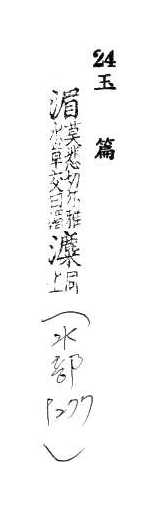 24 玉篇
湄莫悲切尔雅水草交曰湄瀓上同
(水部 P277)